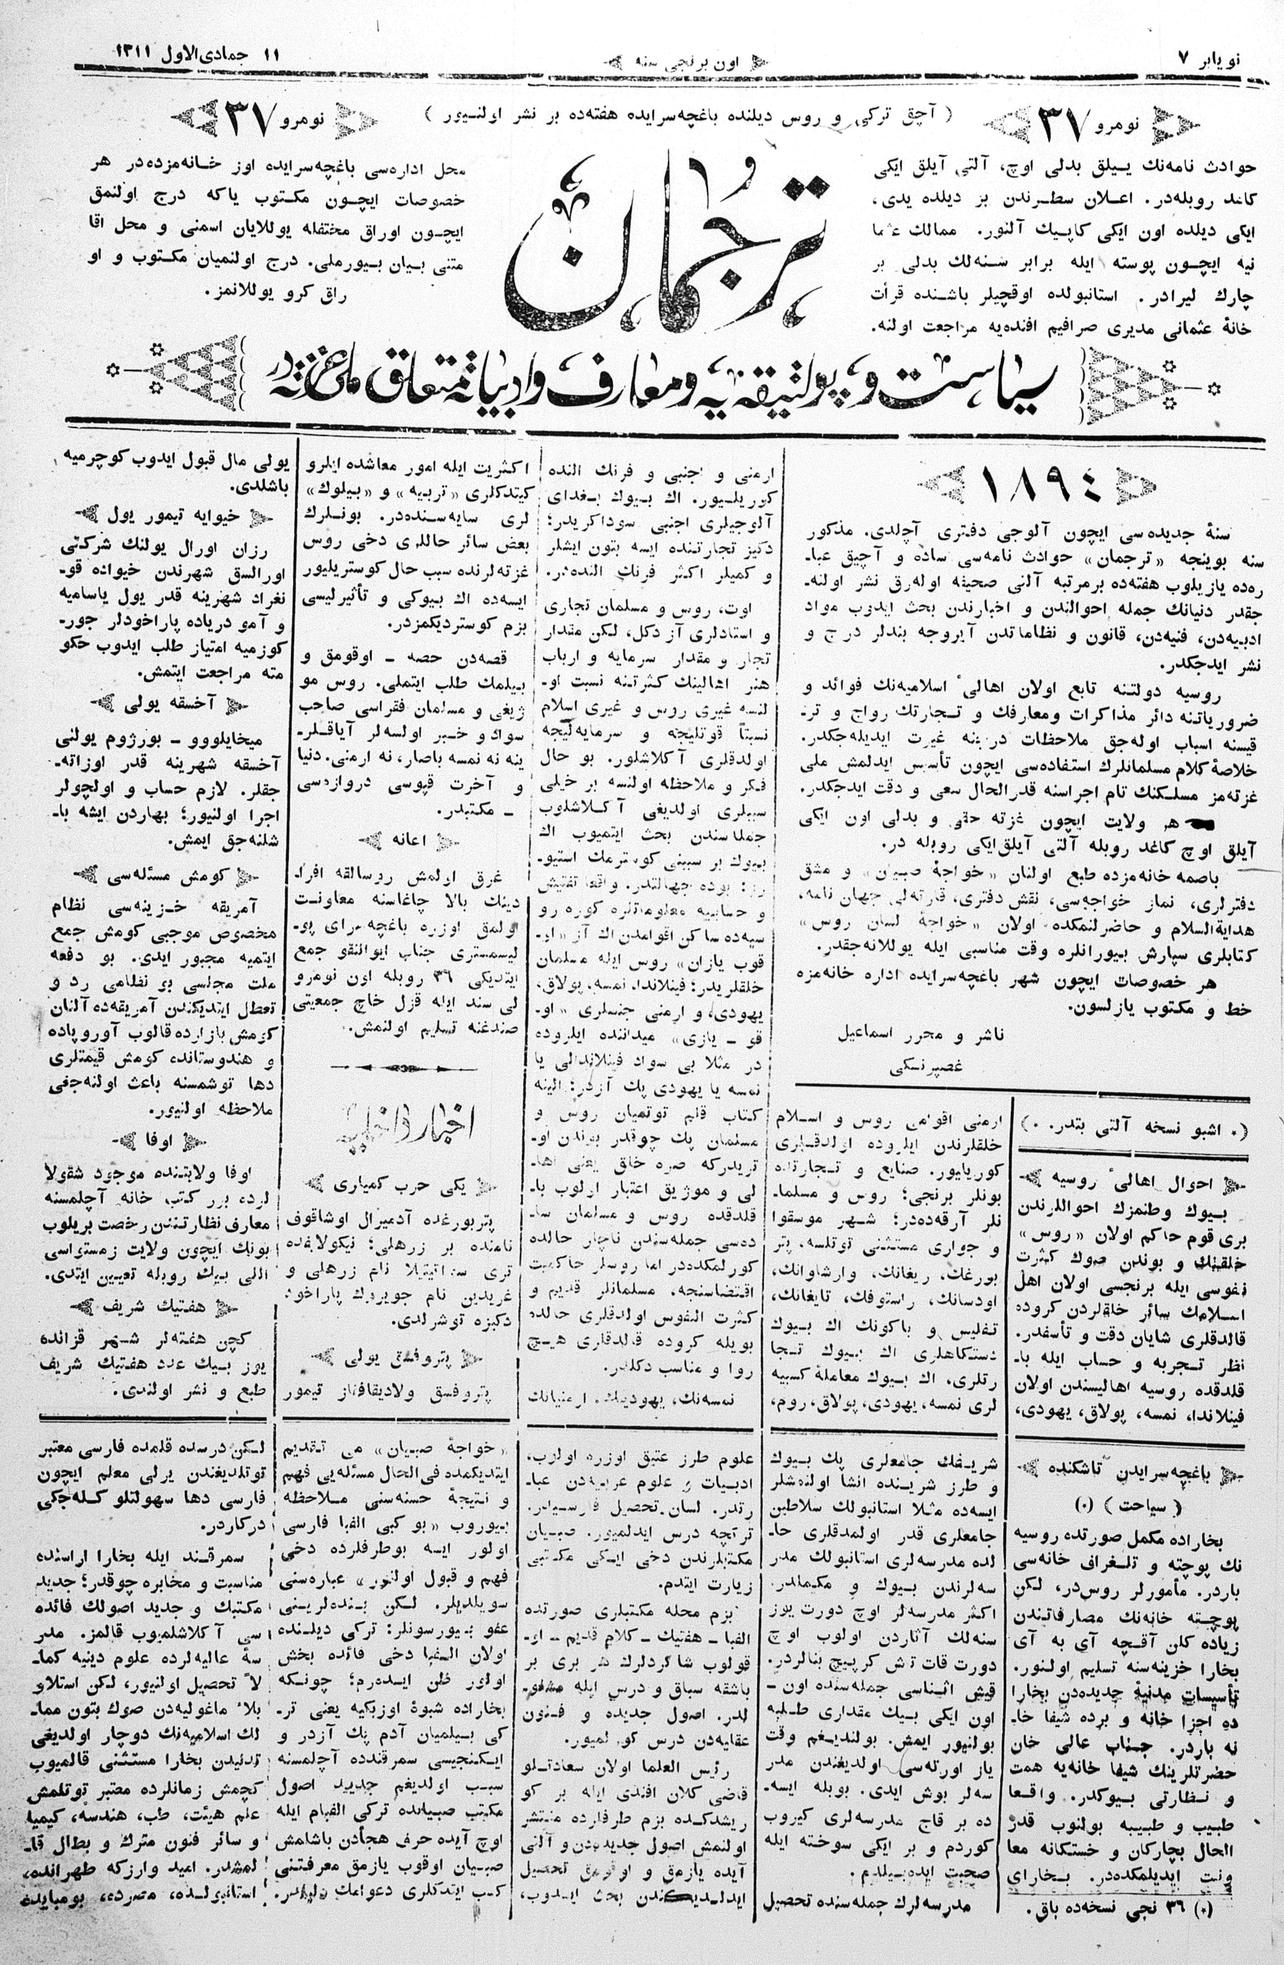 نویابر ٧
اون برنجی سنه
١١ جمادی‌الاول ١٣١١
نومرو ٣٧
( آچق ترکی و روس دیلنده باغچه‌سرایده هفته‌ده بر نشر اولنیور )
نومرو ٣٧
حوادث نامه‌نك ییلق بدلی اوچ، آلتی آیلق ایكی
كاغد روبله‌در. اعلان سطرندن بر دیلده یدی،
ایكی دیلده اون ایكی كاپیك آلنور. ممالك عثما
نیه ایچون پوسته ایله برابر سنه‌لك بدلی بر
چارك لیرادر. استانبولده اوقچیلر باشنده قرأت
خانهٔ عثمانی مدیری صرافیم افنده‌یه مراجعت اولنه.
ترجمان
محل اداره‌سی باغچه‌سرایده اوز خانه‌مزده‌در هر
خصوصات ایچون مكتوب یاكه درج اولنمق
ایچون اوراق مختفله یوللایان اسمنی و محل اقا
متنی بیان بیورملی. درج اولنمیان مكتوب و او
راق كرو یوللانمز.
سیاست و پولتیقه‌یه و معارف و ادبیاته متعلق ملی غزته‌در
١٨٩٤
سنهٔ جدیده‌سی ایچون آلوجی دفتری آچلدی. مذكور
سنه بوینجه «ترجمان» حوادث نامه‌سی ساده و آچیق عبا-
ره‌ده یازیلوب هفته‌ده برمرتبه آلتی صحیفه اوله‌رق نشر اولنه-
جقدر دنیانك جمله احوالندن و اخبارندن بحث ایدوب مواد
ادبیه‌دن، فنیه‌دن، قانون و نظاماتدن آیروجه بندلر درج و
نشر ایدجكدر.
روسیه دولتنه تابع اولان اهالیٔ اسلامیه‌نك فوائد و
ضروریاتنه دائر مذاكرات ومعارفك و تجارتك رواج و تر-
قیسنه اسباب اوله‌جق ملاحظات درینه غیرت ایدیله‌جكدر.
خلاصهٔ كلام مسلمانلرك استفاده‌سی ایچون تأسیس ایدلمش ملی
غزته‌مز مسلكنك تام اجراسنه قدرالحال سعی و دقت ایدجكدر.
هر ولایت ایچون غزته حقی و بدلی اون ایكی
آیلق اوچ كاغد روبله آلتی آیلق ایكی روبله در.
باصمه خانه‌مزده طبع اولنان «خواجهٔ صبیان» و مشق
دفترلری، نماز خواجه‌سی، نقش دفتری، قارته‌لی جهان نامه،
هدایةالسلام و حاضرلنمكده اولان «خواجهٔ لسان روس»
كتابلری سپارش بیورانلره وقت مناسبی ایله یوللانه‌جقدر.
هر خصوصات ایچون شهر باغچه‌سرایده اداره خانه‌مزه
خط و مكتوب یازلسون.
ناشر و محرر اسماعیل
غصپرنسكی
(٠ اشبو نسخه آلتی بتدر. ٠)
احوال اهالیٔ روسیه
بیوك وطنمزك احواللرندن
بری قوم حاكم اولان «روس»
خلقینك و بوندن صوك كثرت
نفوسی ایله برنجسی اولان اهل
اسلامك سائر خلقلردن كروده
قالدقلری شایان دقت و تأسفدر.
نظر تجربه و حساب ایله با-
قلدقده روسیه اهالیسندن اولان
فینلاندا، نمسه، پولاق، یهودی،
ارمنی اقوامی روس و اسلام
خلقلرندن ایلروده اولدقلری
كوریلیور. صنایع و تجارتده
بونلر برنجی؛ روس و مسلما-
نلر آرقه‌ده‌در؛ شهر موسقوا
و جواری مستثنی توتلسه، پتر
بورغك، ریغانك، وارشاوانك،
اودسانك، راستوفك، تایغانك،
تفلیس و باكونك اك بیوك
دستكاهلری اك بیوك تجا
رتلری، اك بیوك معاملهٔ كسبیه
لری نمسه، یهودی، پولاق، روم،
ارمنی و اجنبی و فرنك النده
كوریلیور. اك بیوك بغدای
آلوجیلری اجنبی سوداكریدر؛
دكیز تجارتنده ایسه بتون ایشلر
و كمیلر اكثر فرنك النده‌در.
اوت، روس و مسلمان تجاری
و استادلری آز دكل، لكن مقدار
تجار و مقدار سرمایه و ارباب
هنر اهالینك كثرتنه نسبت او-
لنسه غیری روس و غیری اسلام
نسبتاً قوتلیجه و سرمایه‌لیجه
اولدقلری آكلاشلور. بو حال
فكر و ملاحظه اولنسه بر خیلی
سببلری اولدیغی آكلاشلوب
جملهٔ‌سندن بحث ایتمیوب اك
بیوك بر سببنی كوسترمك استیو-
رز: بوده جهالتدر. واقعا تفتیش
و حسابیه معلوماتنه كوره رو
سیه‌ده ساكن اقوامدن اك آز «او-
قوب یازان» روس ایله مسلمان
خلقلریدر؛ فینلاندا، نمسه، پولاق،
یهودی، و ارمنی جنسلری «او-
قو - یازی» میداننده ایلروده
در مثلا بی سواد فینلاندالی یا
نمسه یا یهودی پك آزدر؛ الینه
كتاب قلم توتمیان روس و
مسلمان پك چوقدر بوندن او-
تریدركه صره خلق یعنی اها-
لی و موژیق اعتبار اولوب با-
قلدقده روس و مسلمان سا-
ده‌سی جمله‌سندن ناچار حالده
كورلمكده‌در اما روسلر حاكمیت
اقتضاسنجه، مسلمانلر قدیم و
كثرت النفوس اولدقلری حالده
بویله كروده قالدقلری هیچ
روا و مناسب دكلدر.
نمسه‌نك، یهودینك، ارمنیانك
اكثریت ایله امور معاشده ایلرو
كیتدكلری «تربیه» و «بیلوك»
لری سایه‌سنده‌در. بونلرك
بعض سائر حاللری دخی روس
غزته‌لرنده سبب حال كوستریلیور
ایسه‌ده اك بیوكی و تأثیرلیسی
بزم كوستردیكمزدر.
قصه‌دن حصه - اوقومق و
بیلمك طلب ایتملی. روس مو
ژیغی و مسلمان فقراسی صاحب
سواد و خبر اولسه‌لر آیاقلر-
ینه نه نمسه باصار، نه ارمنی. دنیا
و آخرت قپوسی دروازه‌سی
- مكتبدر.
اعانه
غرق اولمش روسالقه افرا-
دینك بالا چاغاسنه معاونت
اولمق اوزره باغچه سرای پو-
لیسمستری جناب ایوانقو جمع
ایتدیكی ٣٦ روبله اون نومرو
لی سند ایله قزل خاچ جمعیتی
صندغنه تسلیم اولنمش.
اخبار داخلیه
یكی حرب كمیاری
پتربورغده آدمیرال اوشاقوف
نامنده بر زرهلی؛ نیكولایفده
تری سواتیتلا نام زرهلی و
غریدین نام جویروك پاراخود
دكیزه توشرلدی.
پتروفسق یولی
پتروفسق ولادیقافقاز تیمور
یولی مال قبول ایدوب كوچرمیه
باشلدی.
خیوایه تیمور یول
رزان اورال یولنك شركتی
اورالسق شهرندن خیواده قو-
نغراد شهرینه قدر یول یاسامیه
و آمو دریاده پاراخودلر جور-
كوزمیه امتیاز طلب ایدوب حكو
مته مراجعت ایتمش.
آخسقه یولی
میخایلووو - بورژوم یولنی
آخسقه شهرینه قدر اوزاته-
جقلر. لازم حساب و اولچولر
اجرا اولنیور؛ بهاردن ایشه با-
شلنه‌جق ایمش.
كومش مسئله‌سی
آمریقه خزینه‌سی نظام
مخصوص موجبی كومش جمع
ایتمیه مجبور ایدی. بو دفعه
ملت مجلسی بو نظامی رد و
تعطل ایتدیكندن آمریقه‌ده آلنان
كومش بازارده قالوب آوروپاده
و هندوستانده كومش قیمتلری
دها توشمسنه باعث اولنه‌جغی
ملاحظه اولنیور.
اوفا
اوفا ولایتنده موجود شقولا
لرده برر كتب خانه آچلمسنه
معارف نظارتندن رخصت بریلوب
بونك ایچون ولایت زمستواسی
اللی بیك روبله تعیین ایتدی.
هفتیك شریف
كچن هفته‌لر شهر قزانده
یوز بیك عدد هفتیك شریف
طبع و نشر اولندی.
باغچه‌سرایدن تاشكنده
( سیاحت ) (٠)
بخاراده مكمل صورتده روسیه
نك پوچته و تلغراف خانه‌سی
باردر. مأمورلر روس‌در، لكن
پوچته خانه‌نك مصارفاتندن
زیاده كلن آقچه آی به آی
بخارا خزینه‌سنه تسلیم اولنور.
تأسیسات مدنیهٔ جدیده‌دن بخارا
ده اجزا خانه و برده شیفا خا-
نه باردر. جناب عالی خان
حضرتلرینك شیفا خانه‌یه همت
و نظارتی بیوكدر. واقعا
طبیب و طبیبه بولنوب قدر
الحال بیچاركان و خستكانه معا
ونت ایدیلمكده‌در. بخارای
(٠) ٣٦ نجی نسخه‌ده باق.
شریفك جامعلری پك بیوك
و طرز شرینده انشا اولنمشلر
ایسه‌ده مثلا استانبولك سلاطین
جامعلری قدر اولمدقلری حا-
لده مدرسه‌لری استانبولك مدر
سه‌لرندن بیوك و مكملدر.
اكثر مدرسه‌لر اوچ دورت یوز
سنه‌لك آثاردن اولوب اوچ
دورت قات تاش كرپیچ بنالردر.
قیش اثناسی جمله‌سنده اون -
اون ایكی بیك مقداری طلبه
بولنیور ایمش. بولندیغم وقت
یاز اورته‌سی اولدیغندن مدر
سه‌لر بوش ایدی. بویله ایسه-
ده بر قاچ مدرسه‌لری كیروب
كوردم و بر ایكی سوخته ایله
صحبت ایده‌بیلدم.
مدرسه‌لرك جمله‌سنده تحصیل
علوم طرز عتیق اوزره اولوب،
ادبیات و علوم عربیه‌دن عبا-
رتدر. لسان تحصیل فارسیدر.
ترتچه درس ایدلمیور. صبیان
مكتبلرندن دخی ایكی مكتبی
زیارت ایتدم.
بزم محله مكتبلری صورتده
الفبا - هفتیك - كلام قدیم - او-
قولوب شاگردلرك هر بری بر
باشقه سباق و درس ایله مشغو-
لدر. اصول جدیده و فنون
عقلیه‌دن درس كورلمیور.
رئیس العلما اولان سعادتلو
قاضی كلان افندی ایله بر كو
ریشدكده بزم طرفلرده منتشر
اولنمش اصول جدیده‌دن و آلتی
آیده یازمق و اوقومق تحصیل
ایدلدیكندن بحث ایدوب،
«خواجهٔ صبیان» می تقدیم
ایتدیكمده فی‌الحال مسئله‌یی فهم
و نتیجهٔ حسنه‌سنی ملاحظه
بیوروب «بو كبی الفبا فارسی
اولور ایسه بوطرفلرده دخی
فهم و قبول اولنور» عباره‌سنی
سویلدیلر. لكن بنده‌لرینی
عفو بیورسونلر: تركی دیلنده
اولان الفبا دخی فائده بخش
اولور ظن ایده‌رم؛ چونكه
بخاراده شیوهٔ اوزبكیه یعنی تر-
كی بیلمیان آدم پك آزدر و
ایكینجیسی سمرقندده آچلمسنه
سبب اولدیغم جدید اصول
مكتب صبیانده تركی الفبام ایله
اوچ آیده حرف هجأدن باشلامش
صبیان اوقوب یازمق معرفتنی
كسب ایتدكلری دعوامك دلیلیدر.
لكن درسده قلمده فارسی معتبر
توتلدیغندن یرلی معلم ایچون
فارسی دها سهولتلو كله‌جكی
دركاردر.
سمرقند ایله بخارا اراسنده
مناسبت و مخابره چوقدر؛ جدید
مكتبك و جدید اصولك فائده
سی آكلاشلمیوب قالمز. مدر
سهٔ عالیه‌لرده علوم دینیه كما-
لاً تحصیل اولنیور، لكن استلاو
بلاٴ ماغولیه‌دن صوك بتون مما-
لك اسلامیه‌نك دوچار اولدیغی
تدنیدن بخارا مستثنی قالمیوب
كچمش زمانلرده معتبر توتلمش
علم هیئت، طب، هندسه، كیمیا
و سائر فنون مترك و بطال قا-
لمشدر. امید وارزكه طهرانده،
استانبولده، مصرده، بومبایده